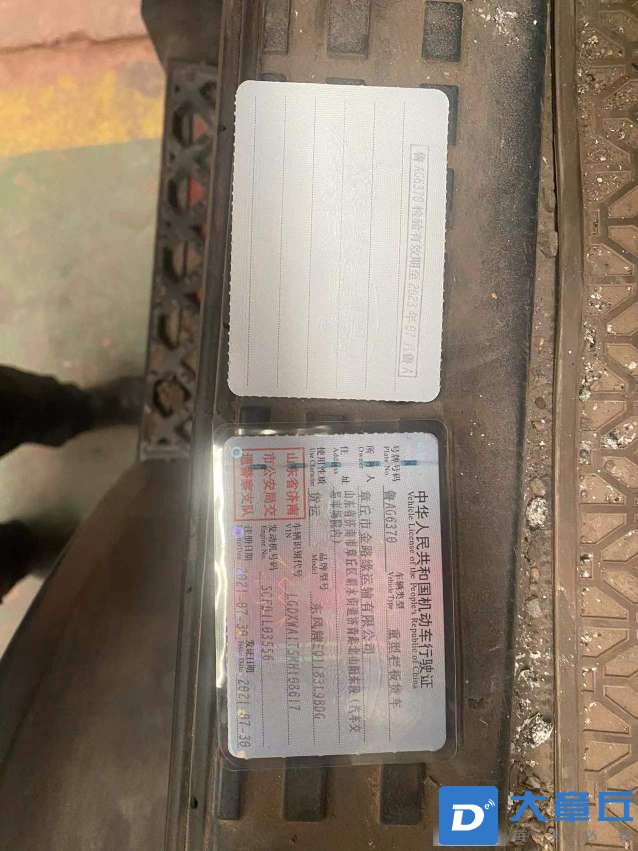 鲁AG6370检验有效期至2023年07月鲁A
中华人民共和国机动车行驶证
Vehicle License of the People's Republic of China
号牌号码 鲁AG6370 车辆类型 重型栏板货车
Plate No. Vehicle Type
所有人 章丘市金盼缘运输有限公司
Owner
住址 山东省济南市章丘区明水街道济青路北山阳东段(汽车交
Address 易市场院内)
使用性质 货运 品牌型号
Use Character Model
山东省济南
市公安局交
通警察支队
车辆识别代号
VIN
发动机号码
Engine No.
注册日期 2021-07-30 发证日期 2021-07-30
Issue Date
大章丘